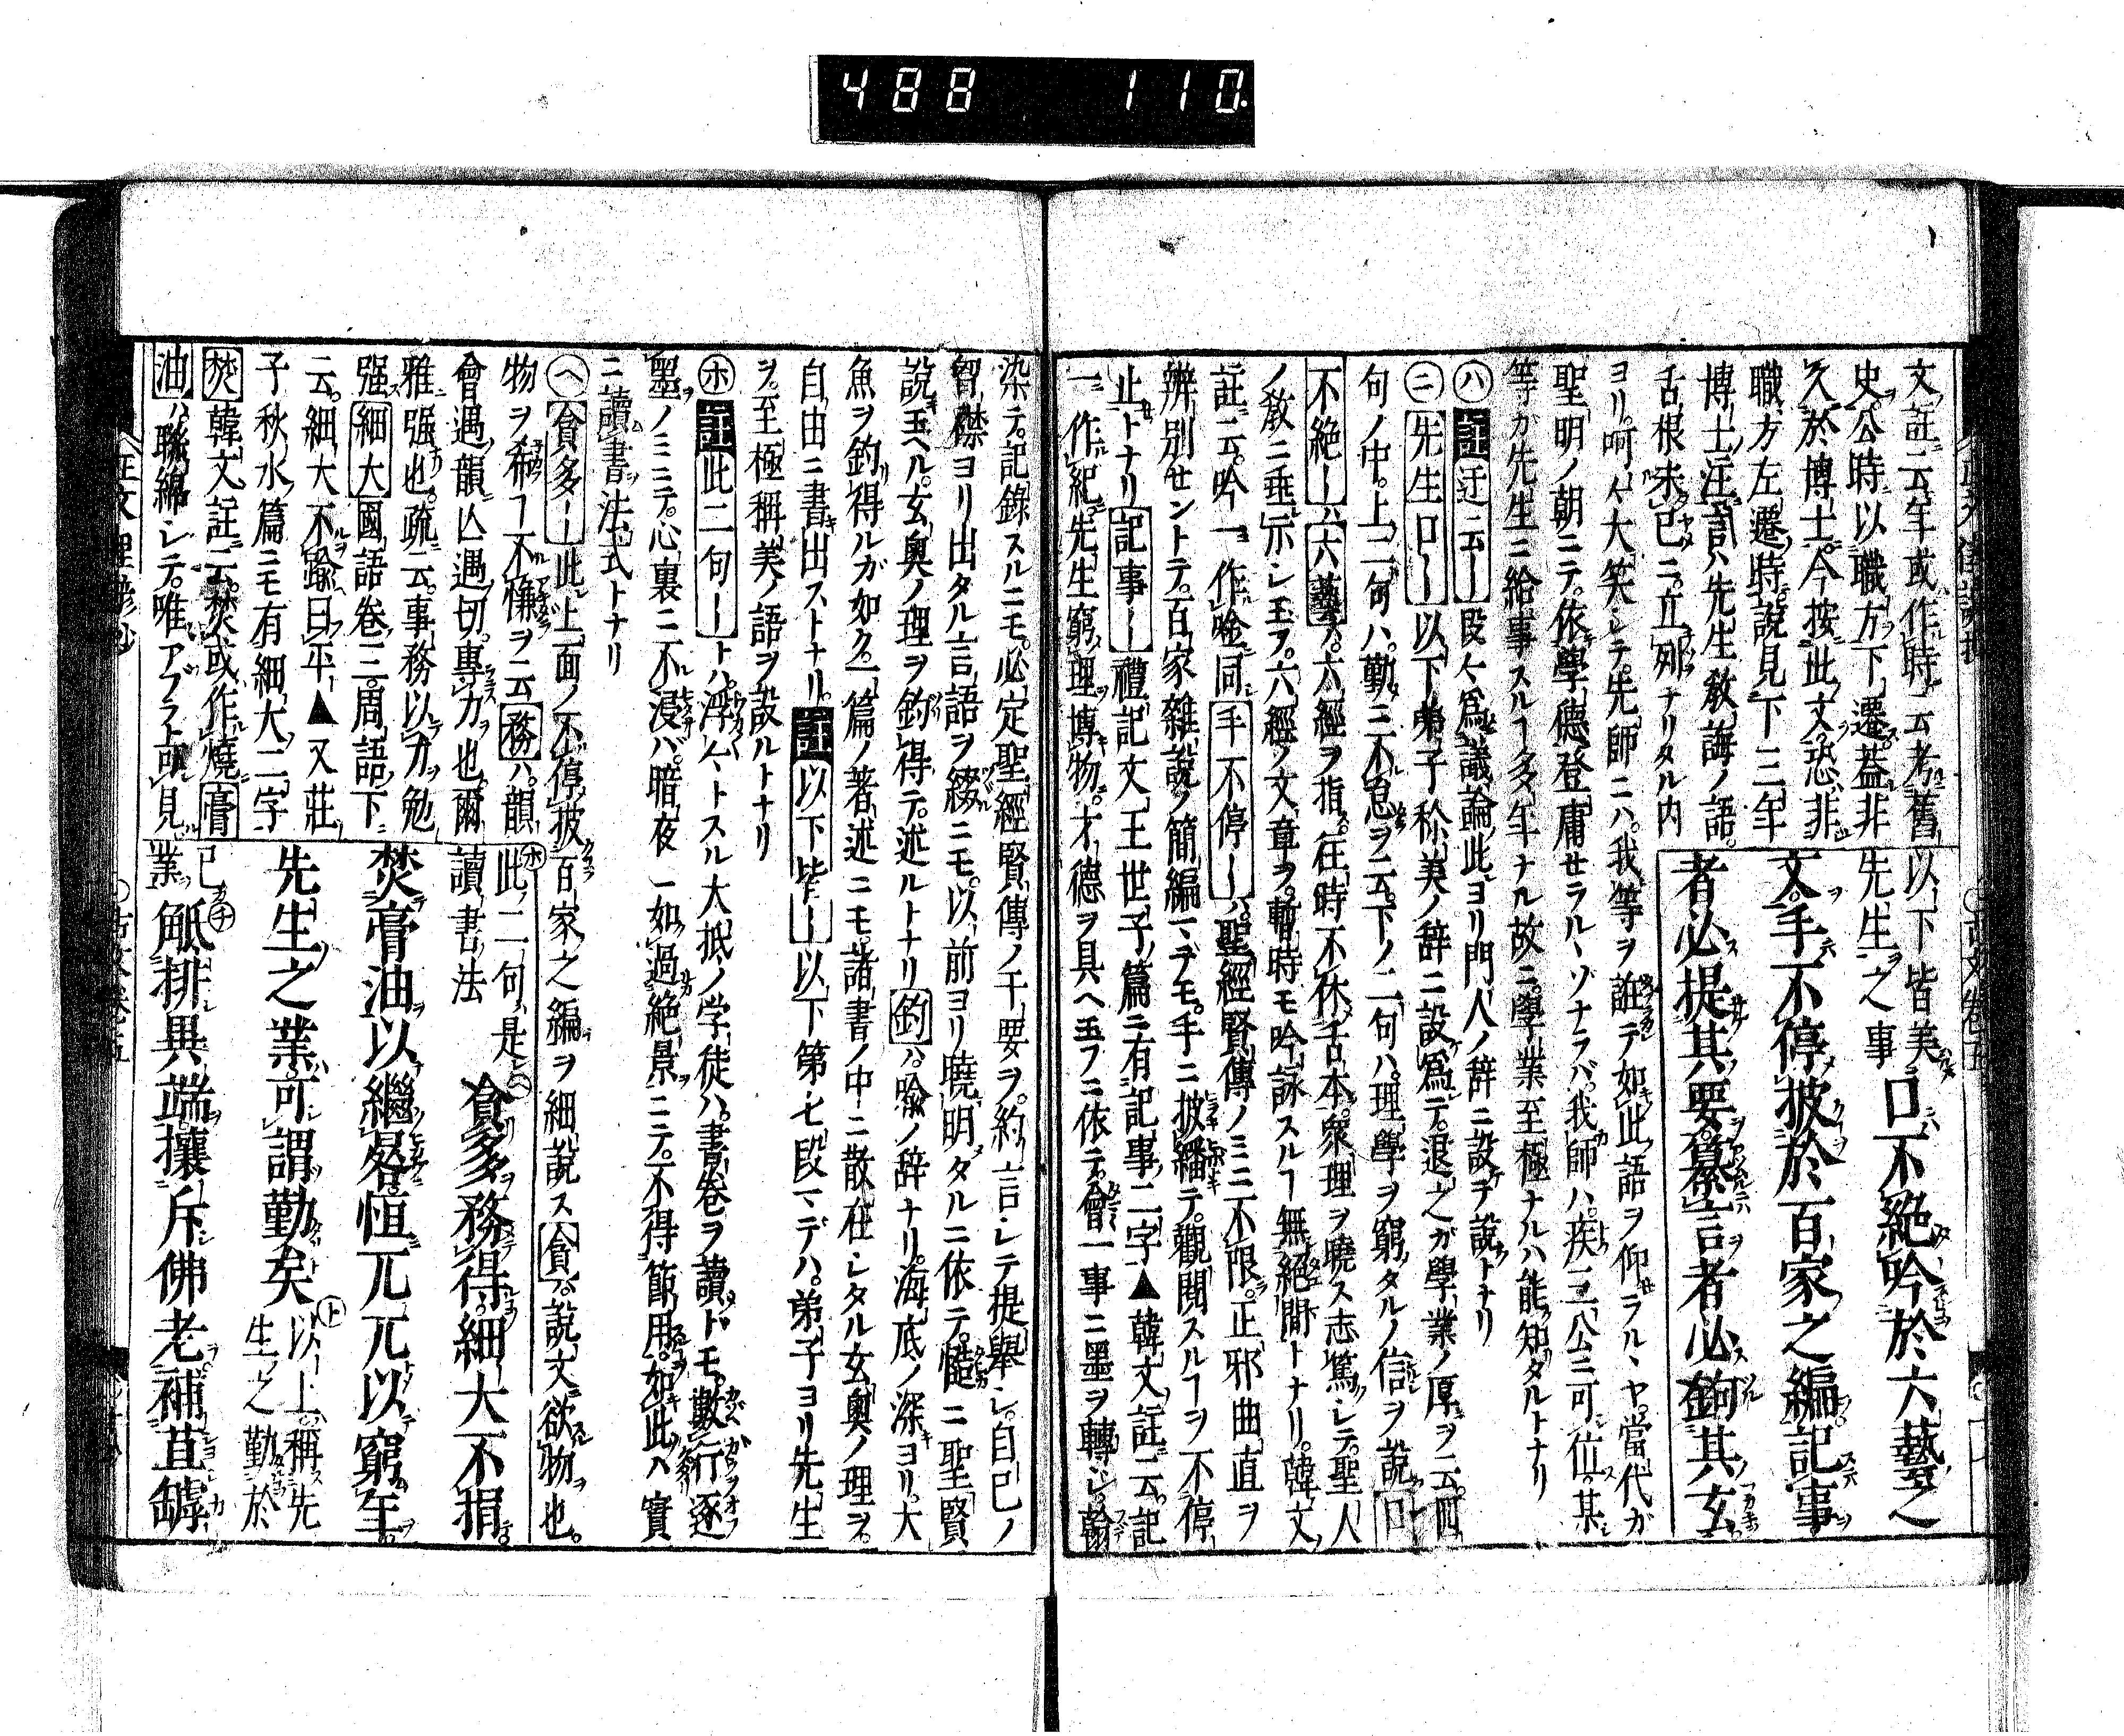 488 110.
文註云年或作時云考舊
史公時以職方下遷蓋非
久於博士今按此文恐非
職方左遷時說見下三年
博士注言ハ先生敎誨ノ語
舌根未已ニ立列ナリタル内
以下皆美
先生之事
口不絕吟於六藝之
文手不停披於百家之編記事
者必提其要纂言者必鉤其玄
ヨリ呵々大笑シテ先師ニハ我等ヲ誑テ如此語ヲ仰ラルヽヤ當代ガ
聖明ノ朝ニテ依學德登庸セラルヽゾナラバ我師ハ疾ニ三公ニ可位某
等ガ先生ニ給事スルヿ多年ナル故ニ學業至極ナルハ能知タルトナリ
ハ 註 迂云 段々爲議論此ヨリ門人ノ辞ニ設テ說トナリ
ニ 先生口 以下弟子称美ノ辞ニ設爲テ退之ガ學業ノ厚ヲ云四
句ノ中上二句ハ勤ニ不怠ヲ云下ノ二句ハ理學ヲ窮タルノ信ヲ說 口
不絕 ハ 六藝 ハ六經ヲ指在時不休舌本衆理ヲ曉ス志篤シテ聖人
ノ敎ニ垂示シ玉フ六經ノ文章ヲ暫時モ吟詠スルヿ無絕間トナリ韓文
註ニ云吟一作唫同 手不停 ハ聖經賢傳ノミニ不限正邪曲直ヲ
辨別セントテ百家雜說ノ簡編マデモ手ニ披繙テ觀閱スルヿヲ不停
止トナリ 記事 禮記文王世子篇ニ有記事二字▲韓文註云記
一作紀先生窮理博物才德ヲ具ヘ玉フニ依テ會一事ニ墨ヲ轉シ翰
染テ記錄スルニモ必定聖經賢傳ノ干要ヲ約言シテ提擧シ自己ノ
智襟ヨリ出タル言語ヲ綴ニモ以前ヨリ曉明タルニ依テ慥ニ聖賢
說玉ヘル玄奧ノ理ヲ釣得テ述ルトナリ 釣 ハ喩ノ辞ナリ海底ノ深ヨリ大
魚ヲ釣得ルガ如ク一篇ノ著述ニモ諸書ノ中ニ散在シタル玄奧ノ理ヲ
自由ニ書出ストナリ 註 以下皆 以下第七段マデハ弟子ヨリ先生
ヲ至極稱美ノ語ヲ設ルトナリ
ホ 註 此二句 トハ浮々トスル大抵ノ学徒ハ書卷ヲ讀ドモ數行逐
墨ノミニテ心裏ニ不浸バ暗夜一如過絕景ニテ不得節用如此ハ實
ニ讀書法式トナリ
ヘ 貪多 此上面ノ不停披百家之編ヲ細說ス 貪 ハ說文欲物也
物ヲ希ヿ不慊ヲ云 務 ハ韻
會遇韻亡遇切專力也爾
雅强也疏云事務以力勉
强 細大 國語卷三周語下
云細大不踰曰平▲又莊
子秋水篇ニモ有細大二字
焚 韓文註云焚或作燒 膏
油 ハ聯綿シテ唯アブラト可見
ホ 此二句是
讀書法
ヘ 貪多務得細大不捐
焚膏油以繼晷恒兀兀以窮年
先生之業可謂勤矣
ト 以上稱先
生之勤於
已業
チ 觝排異端攘斥佛老補苴罅